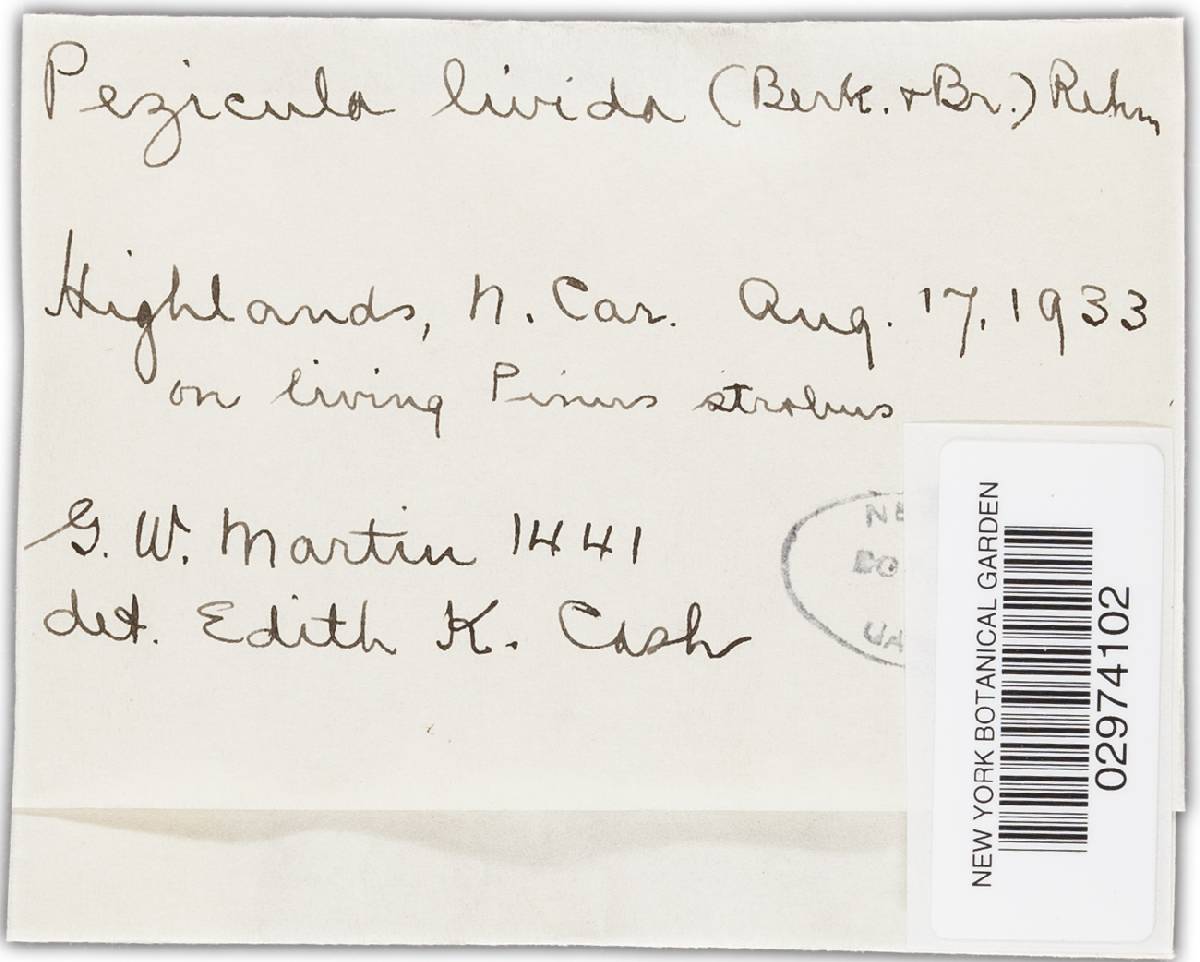 Pezicula livida (Berk. & Br.) Rehm
Highlands, N. Car. Aug. 17, 1933
on living Pinus strobus
G. W. Martin 1441
det. Edith K. Cash
NEW YORK BOTANICAL GARDEN
02974102